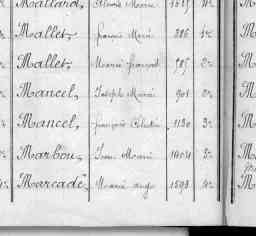 Mallard, Marie 4e
Mallet, François Marie 386 1e
Mallet, Marie François 2e
Mancel, Joseph Marie 901 2e
Mancel, François Célestin 1130 3e
Marbou, Jean Marie 1404 3e
Marcadé Marie Ange 1593 4e